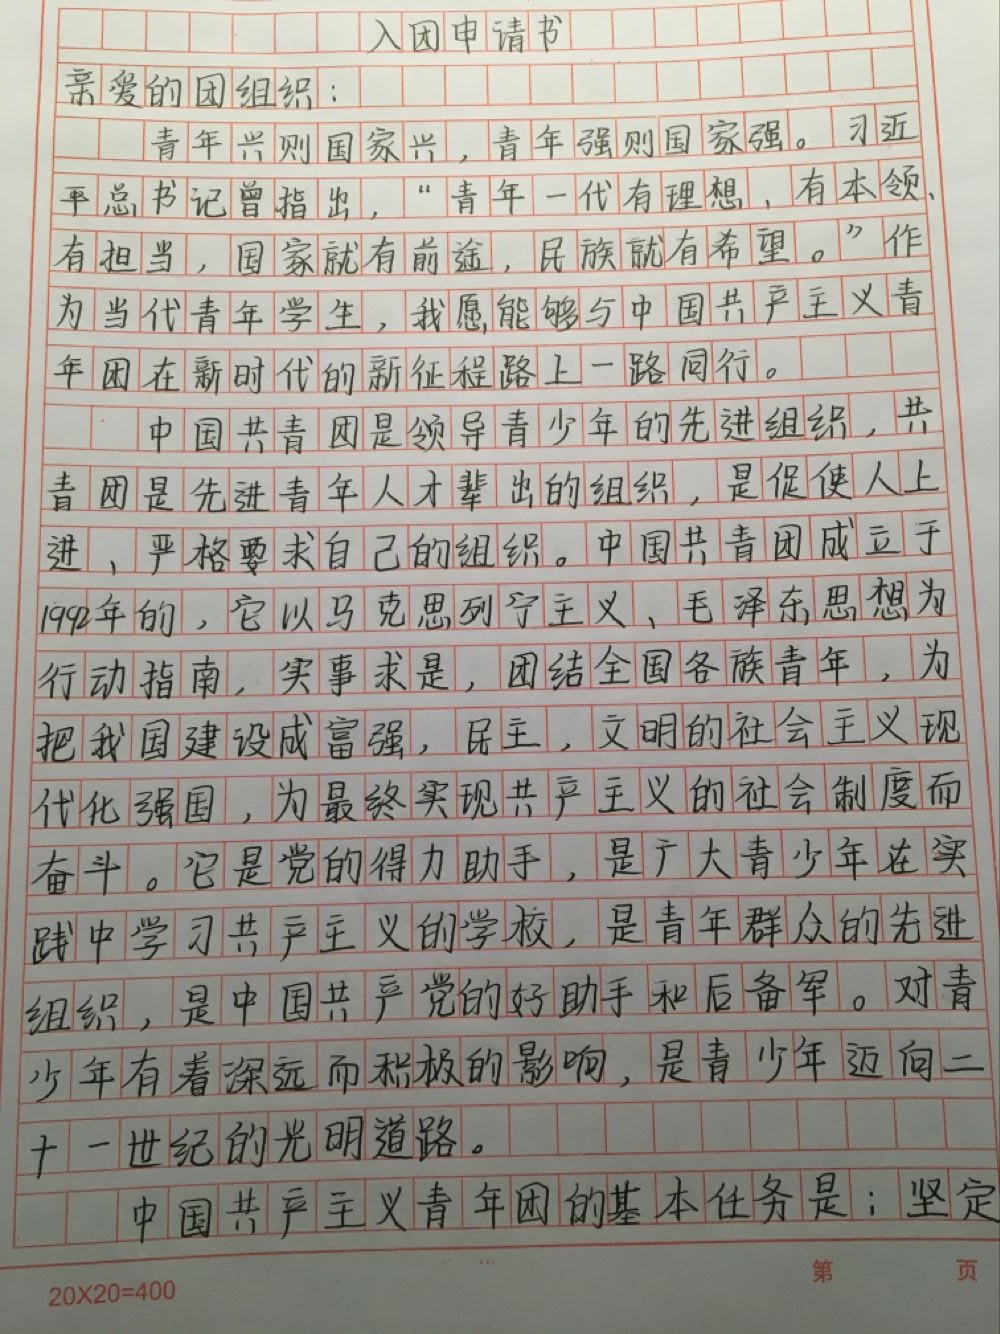 入团申请书
亲爱的团组织：
青年兴则国家兴，青年强则国家强。习近
平总书记曾指出，“青年一代有理想、有本领、
有担当，国家就有前途，民族就有希望。”作
为当代青年学生，我愿能够与中国共产主义青
年团在新时代的新征程路上一路同行。
中国共青团是领导青少年的先进组织，共
青团是先进青年人才辈出的组织，是促使人上
进、严格要求自己的组织。中国共青团成立于
1992年的，它以马克思列宁主义、毛泽东思想为
行动指南，实事求是，团结全国各族青年，为
把我国建设成富强，民主，文明的社会主义现
代化强国，为最终实现共产主义的社会制度而
奋斗。它是党的得力助手，是广大青少年在实
践中学习共产主义的学校，是青年群众的先进
组织，是中国共产党的好助手和后备军。对青
少年有着深远而积极的影响，是青少年迈向二
十一世纪的光明道路。
中国共产主义青年团的基本任务是：坚定
20X20=400
第 页